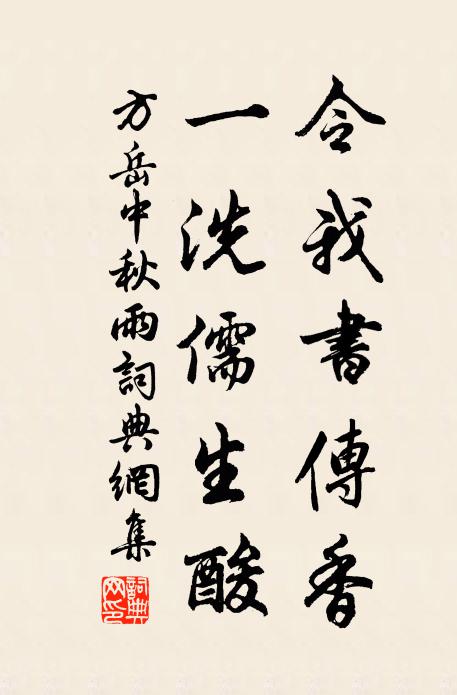 令我書傳香
一洗儒生酸
方岳中秋雨詞典網集
詞典網印